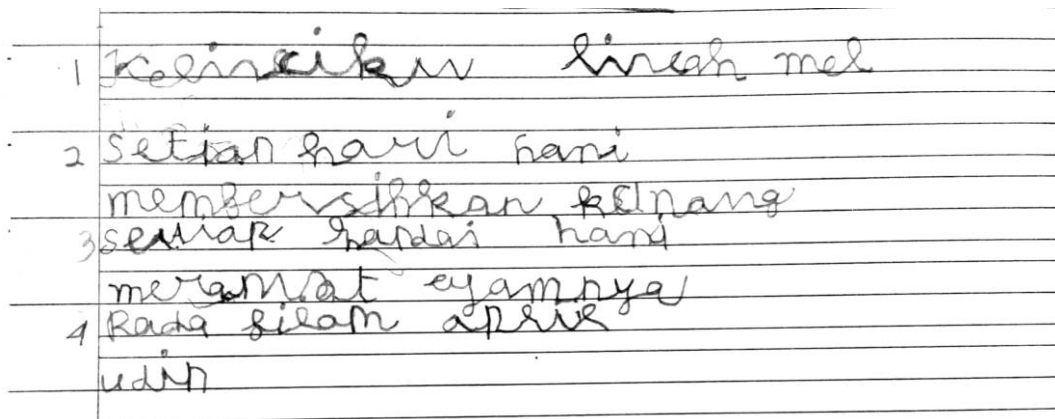 1 Kelinciku lincah mel
2 Setian hari hani
membersihkan
3 setiap hani
merawat ayamnya
4 Pada bilam april
udin